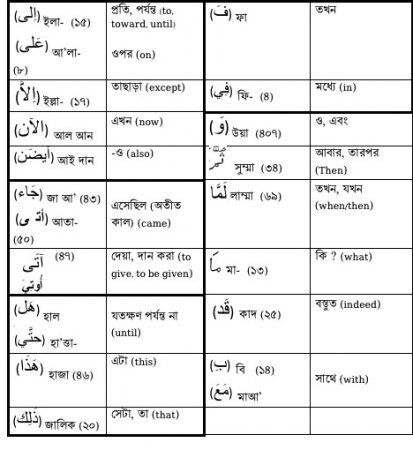 (إِلى) ইলা- (১৫)
প্রতি, পর্যন্ত (to,
toward, until)
(عَلَى) আ'লা-
(৮)
ওপর (on)
(إِلاَّ) ইল্লা- (১৭)
তাছাড়া (except)
(اَلآنَ) আল আন
এখন (now)
(أَيضَنْ) আই দান
-ও (also)
(جَاء) জা আ' (৪৩)
(أتى) আতা-
(৫০)
এসেছিল (অতীত
কাল) (came)
آتَى (৪৭)
أُوتِيَ
দেয়া, দান করা (to
give, to be given)
(هَل) হাল
(حتَّي) হা'ত্তা-
যতক্ষণ পর্যন্ত না
(until)
(هَذَا) হাজা (৪৬)
এটা (this)
(ذَلِكَ) জালিক (২০)
সেটা, তা (that)
(فَ) ফা
তখন
(فِي) ফি- (৪)
মধ্যে (in)
(وَ) উয়া (৪০৭)
ও, এবং
ثُمَّ সুম্মা (৩৪)
আবার, তারপর
(Then)
لَمَّا লাম্মা (৬৯)
তখন, যখন
(when/then)
مَا মা- (১৩)
কি ? (what)
(قَد) কাদ (২৫)
বস্তুত (indeed)
(بِ) বি (১৪)
(مَعَ) মাআ'
সাথে (with)